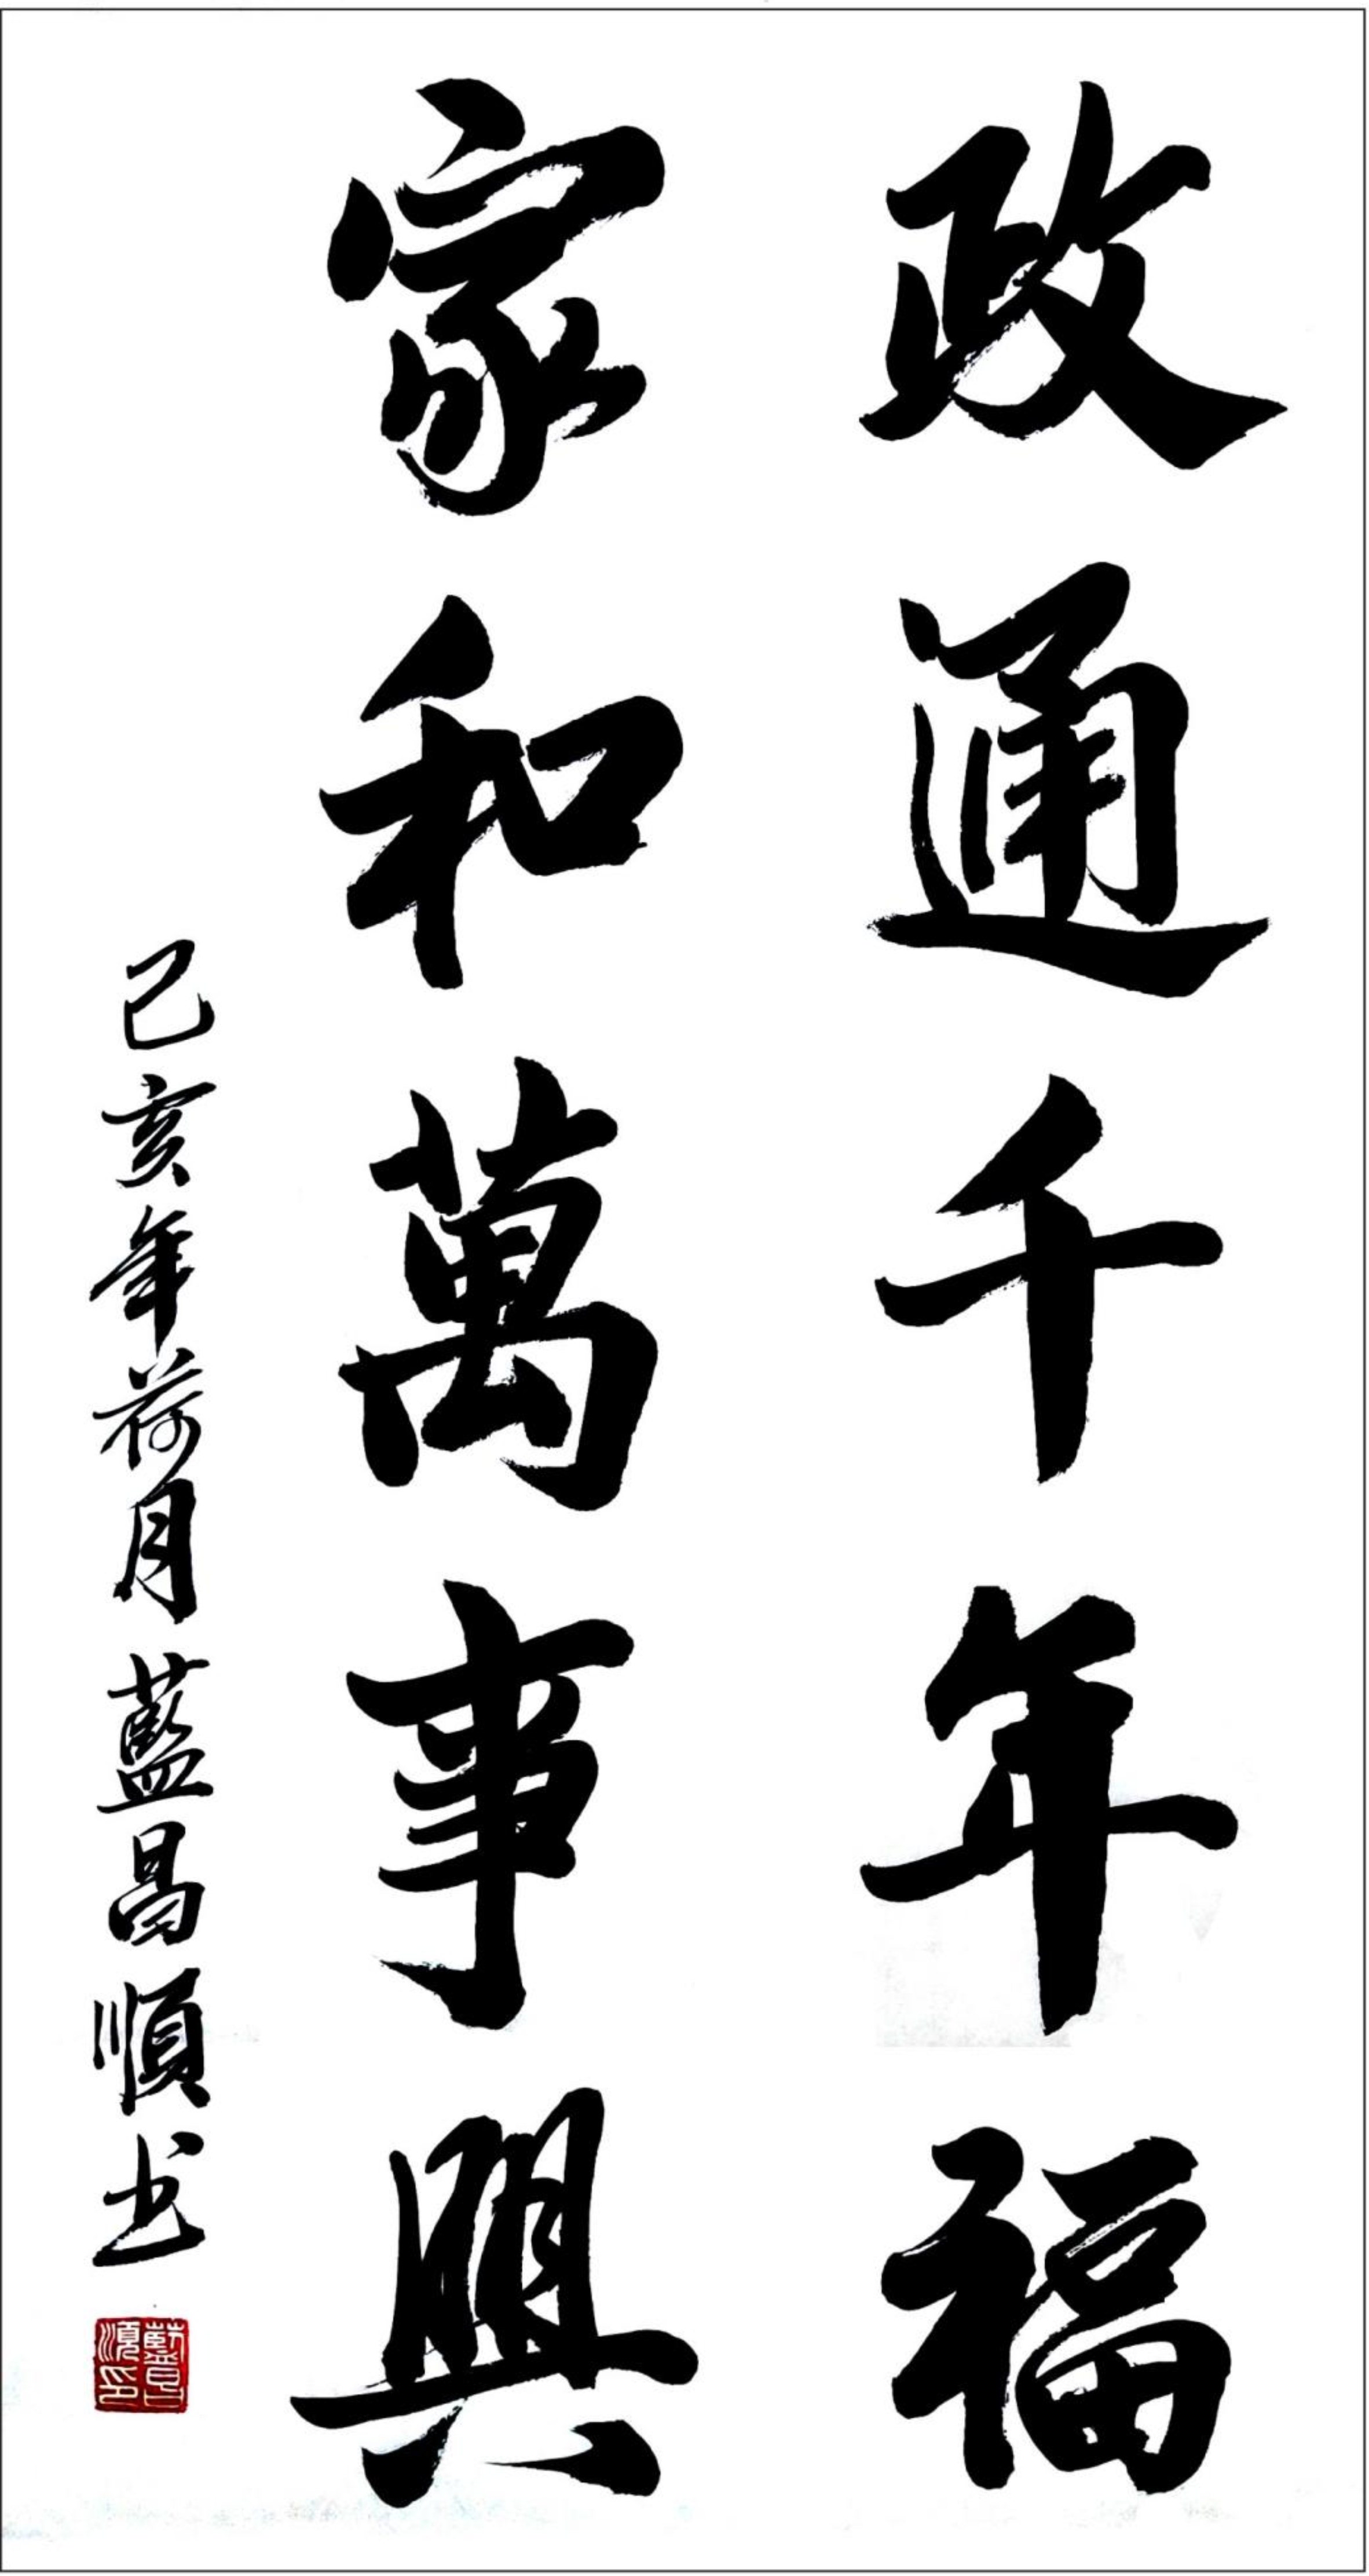 政通千年福
家和萬事興
己亥年荷月藍昌順书
藍昌順印